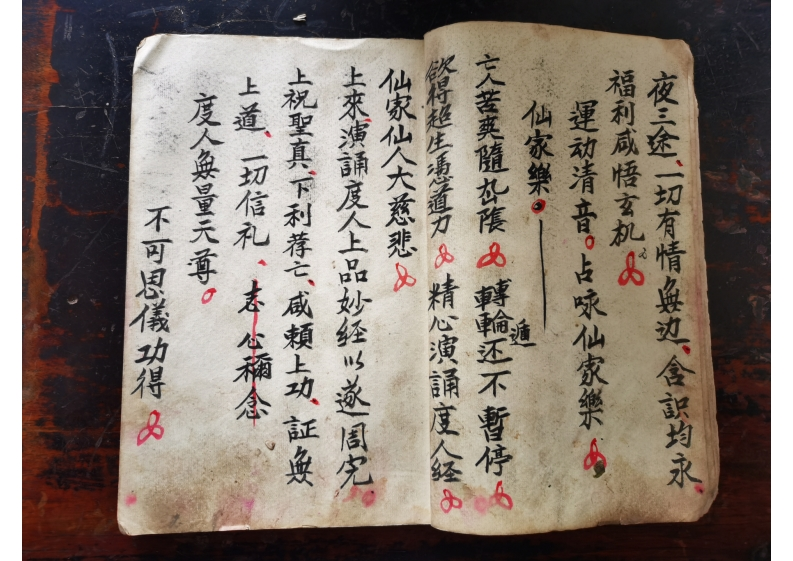 夜三途、一切有情無边、含識均永
福利咸悟玄机
運动清音。占咏仙家樂
仙家樂。
亡人苦爽隨 轉輪还不暫停
遁
欲得超生憑道力 精心演誦度人經
仙家仙人大慈悲
上來、演誦度人上品妙經以遂周完
上祝聖真、下利荐亡、咸賴上功、証無
上道、一切信礼、志心稱念
度人無量天尊。
不可思儀功得